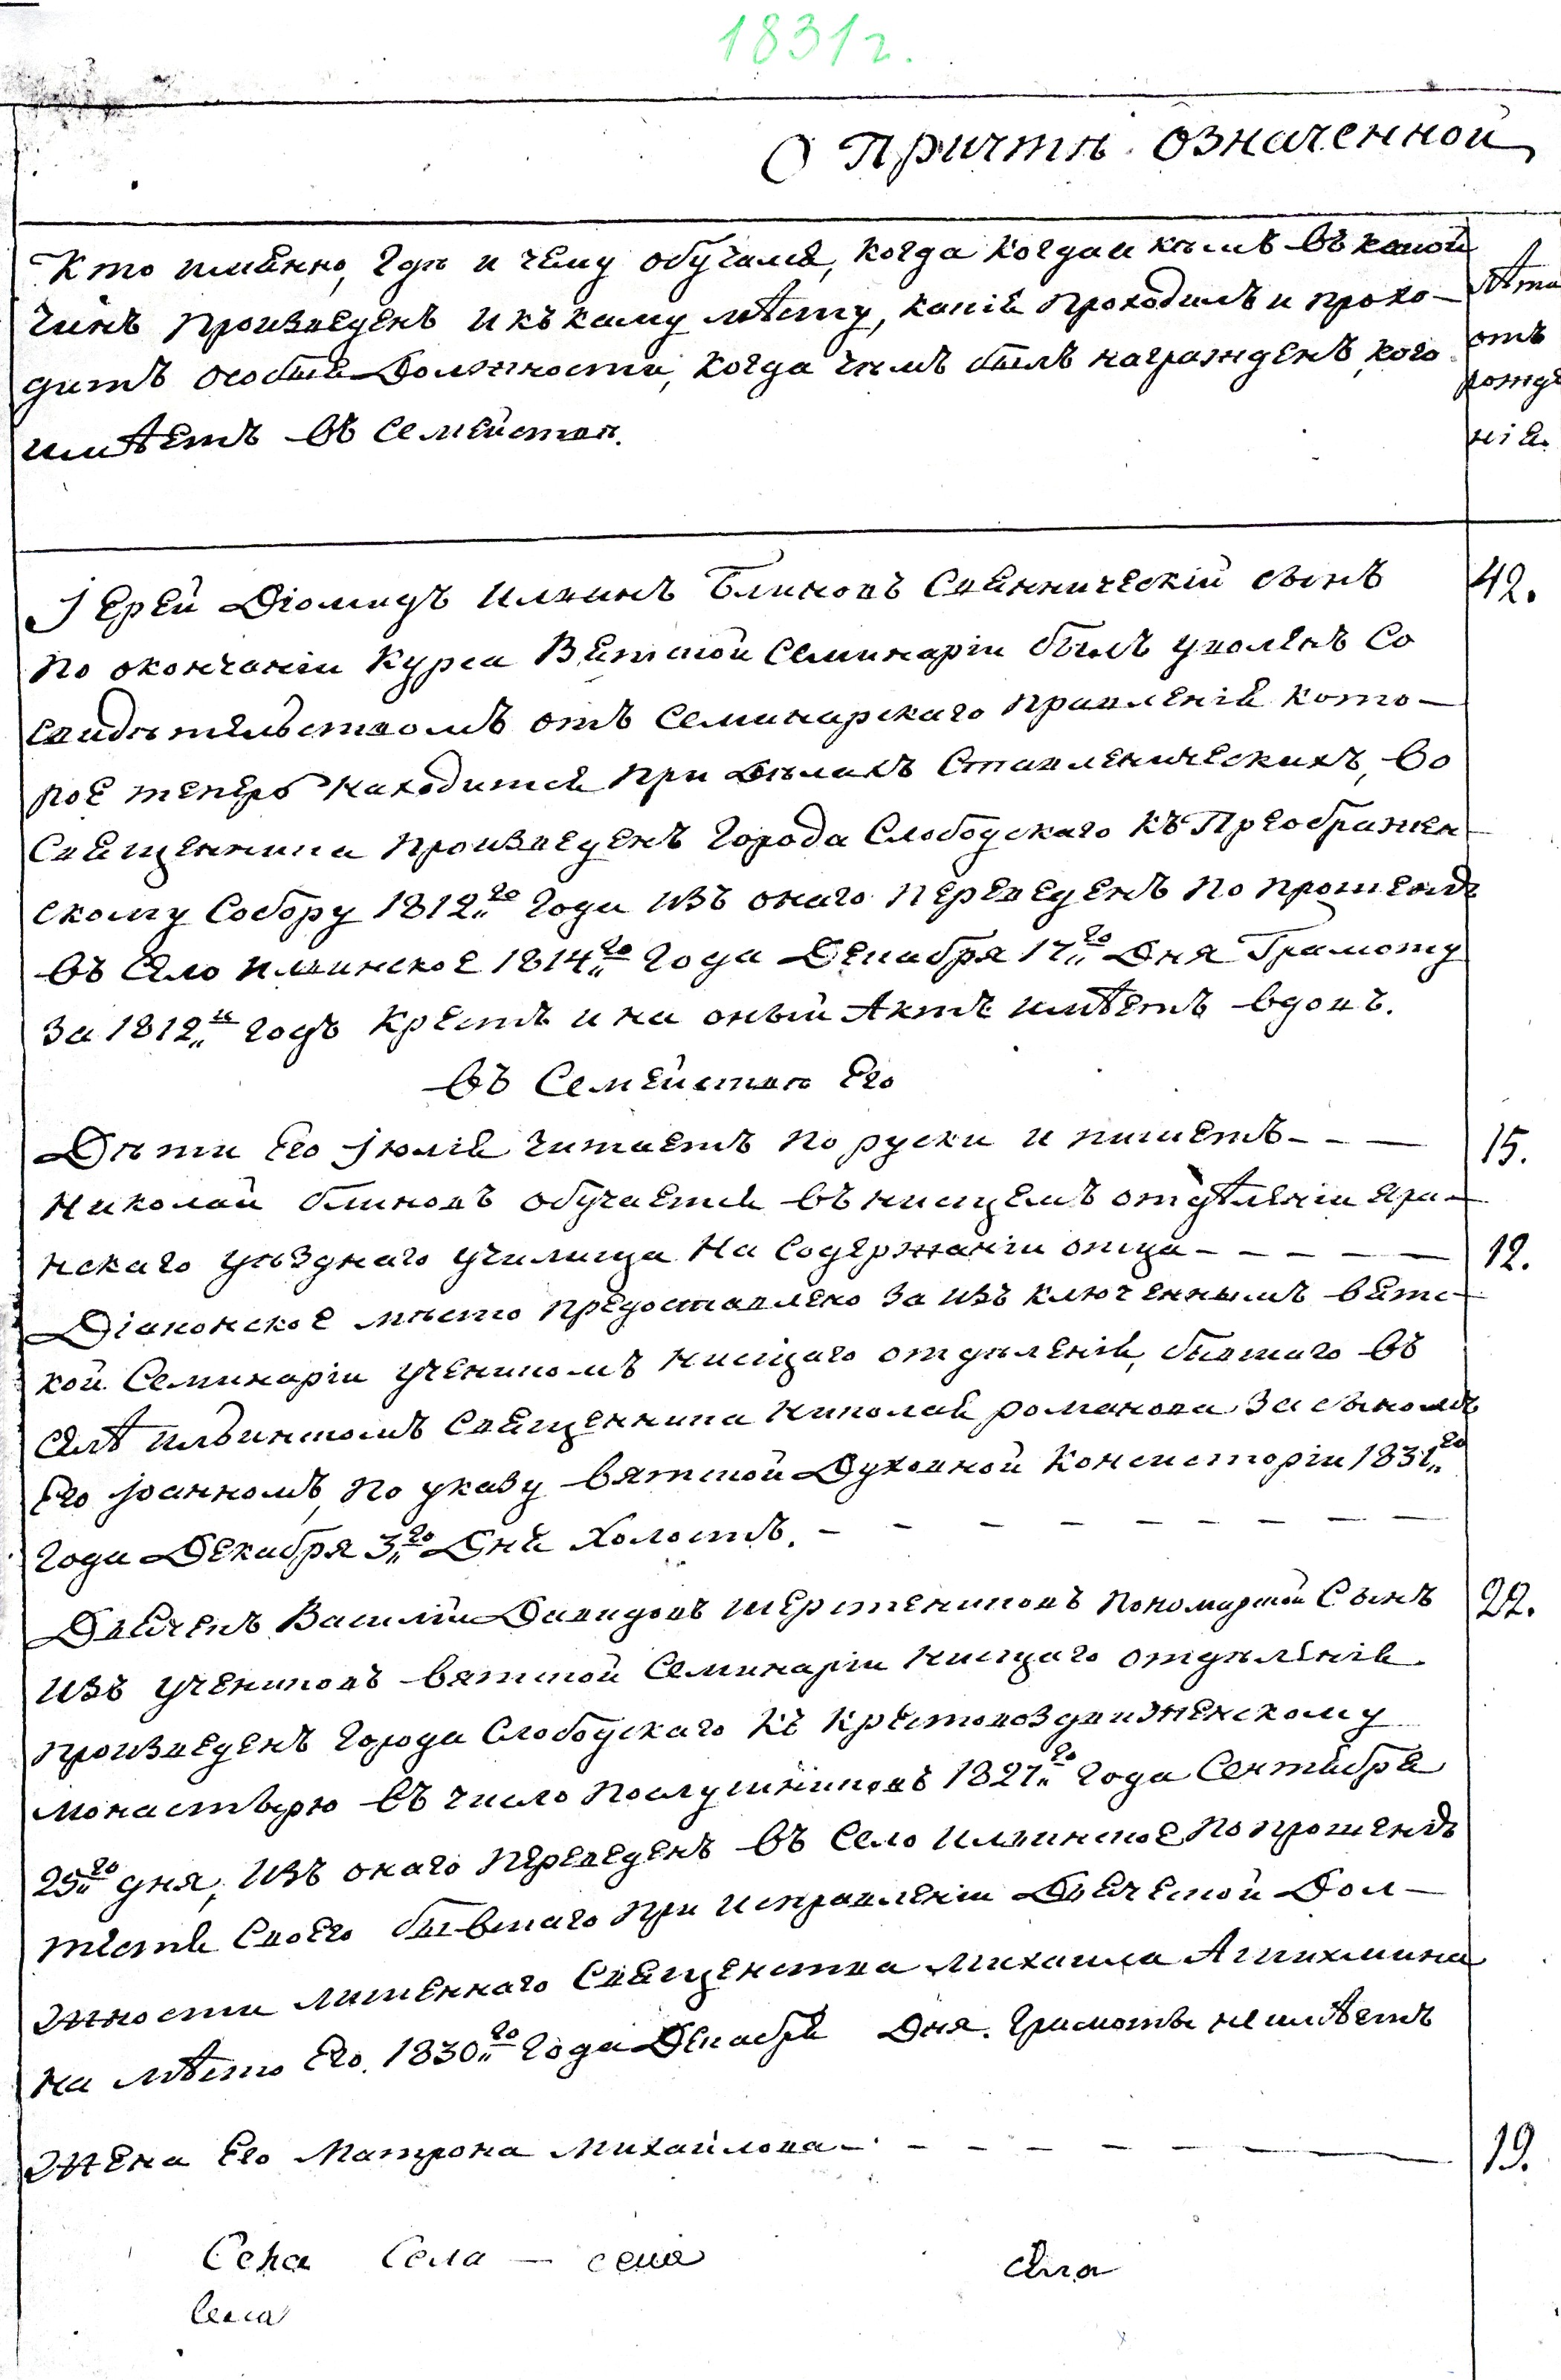 1831 г.
О Причтѣ Означенной
Кто именно, гдѣ и чему обучался, когда когда и кѣмъ въ какой
Чинъ произведенъ и къ кому мѣсту, какія проходилъ и прохо-
дитъ особыя Должности, когда чѣмъ былъ награжденъ, кого
имѣетъ въ семействѣ.
Лѣта
отъ
рожде
нія.
Іерей Діомидъ Ильинъ Блиновъ Священническій сынъ 42.
По окончаніи Курса Вятской Семинаріи былъ уволенъ Со
свидѣтельствомъ отъ Семинарскаго Правленія кото-
рое теперь находится при Дѣлахъ Ставленическихъ, во
Священника произведенъ Города Слободскаго Къ Преображен-
скому Собору 1812„го Года изъ онаго переведенъ по прошенію
въ Село Ильинское 1814„го Года Декабря 17„го Дня Грамоту
За 1812„й годъ Крестъ и на оный Актъ имѣетъ вдовъ.
въ Семействѣ Его
Дѣти Его Іюлія Читаетъ по руски и пишетъ - - — 15.
Николай Блиновъ обучается въ нисщемъ отдѣленіи Яра-
нскаго уѣзднаго училища На Содержаніи отца - - - - — — 12.
Діаконское мѣсто предоставлено За изъ ключеннымъ вятс-
кой Семинаріи ученикомъ нисщаго отдѣленія, бывшаго въ
селѣ Ильинскомъ Священника Николая романова За сыномъ
Его Іоанномъ, по указу Вятской Духовной Консисторіи 1831„го
Года Декабря 3„го Дня Холостъ. - - - - - - - - —
Дьячекъ Василій Давидовъ Шерстениковъ Пономарской Сынъ 22.
изъ учениковъ вятской Семинаріи нисщаго отдѣленія
произведенъ Города Слободскаго Къ Крестовоздвиженскому
монастырю въ число послушниковъ 1827„го Года Сентября
25„го дня, изъ онаго переведенъ въ Село Ильинское по прошенію
тестя Своего бывшаго при исправленіи Дьячекой Дол-
жности лишеннаго Священства Михаила
на мѣсто Его. 1830„го Года Декабря Дня. Грамоты не имѣетъ
Жена Его Матрона Михайлова - - - - - - — 19.
Села Села — села села
Села